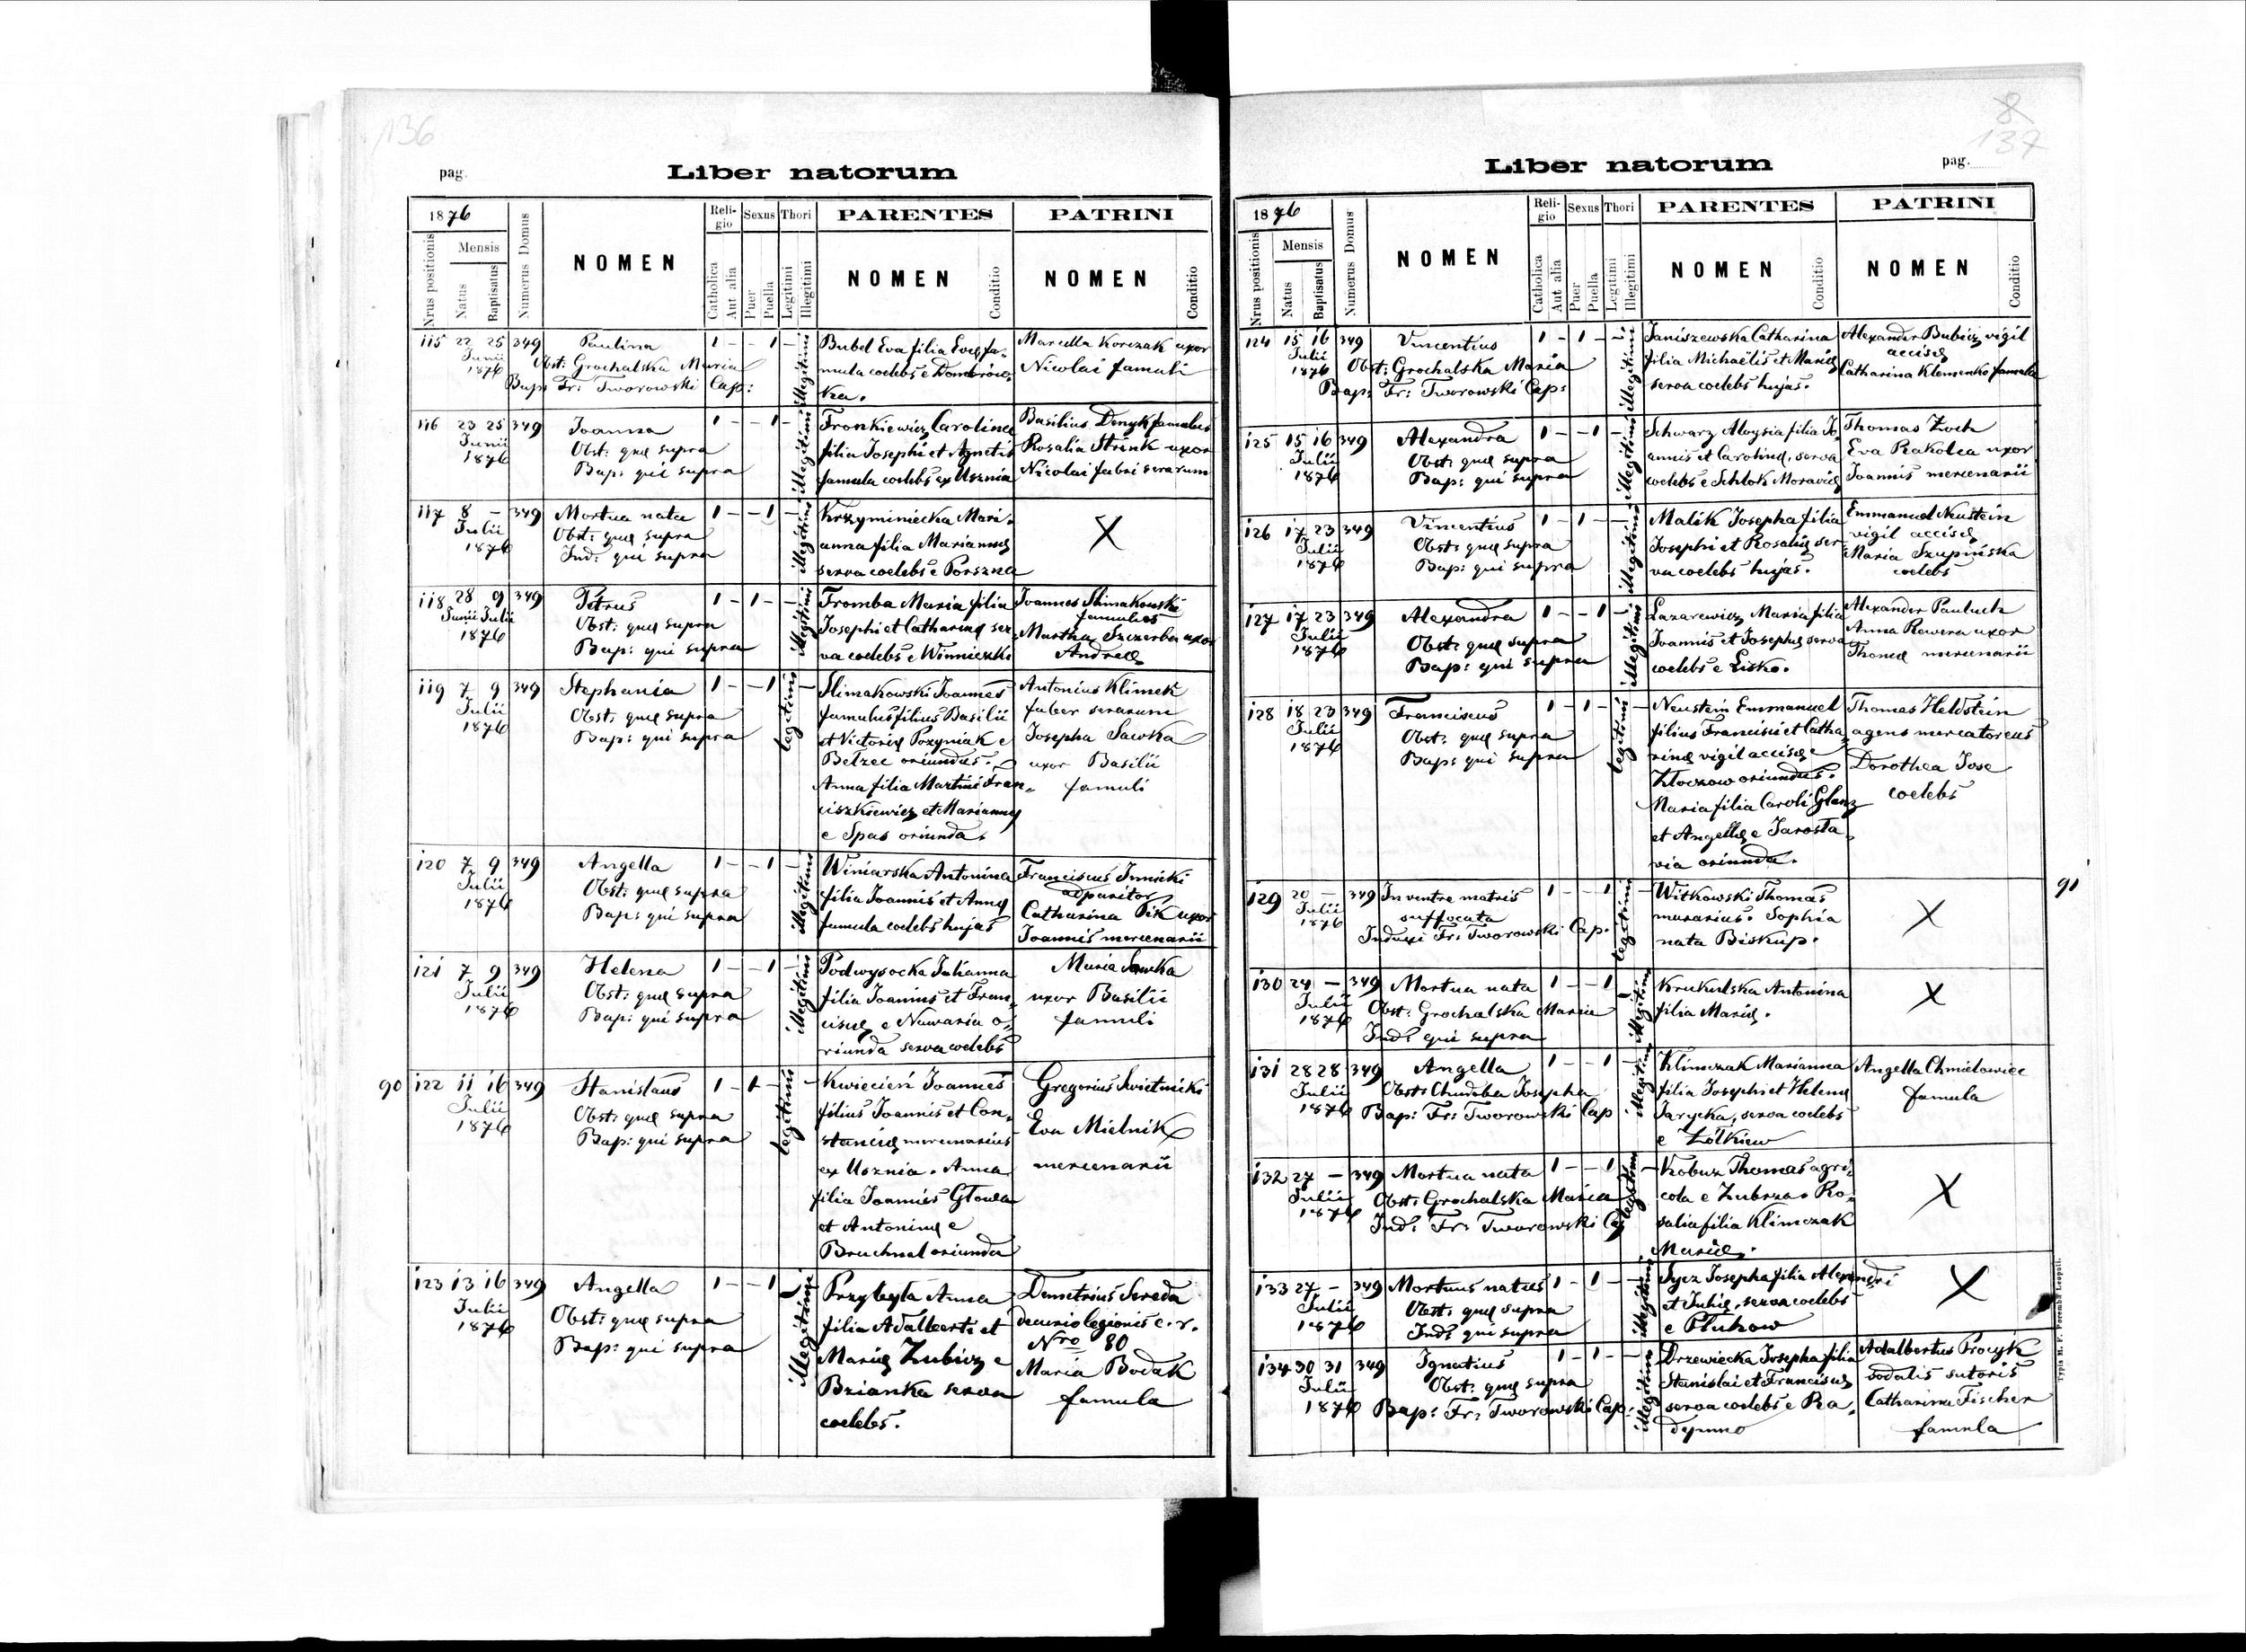 136
pag.
Liber natorum
1876
Nrus positionis
Mensis
Natus
Baptisatus
Numerus Domus
NOMEN
Religio
Catholica
Aut alia
Sexus
Puer
Puella
Thori
Legitimi
Illegitimi
PARENTES
NOMEN
Conditio
PATRINI
NOMEN
Conditio
115 22 25 349 Paulina 1 - - 1 - illegitimi
Junii
1876
Obst: Grochalska Maria
Bap: Fr: Tworowski Cap:
Bubel Eva filia Evæ fa-
mula coelebs e Dombrów-
ka.
Marcella Korczak uxor
Nicolai famuli
116 23 25 349 Joanna 1 - - 1 - illegitimi
Junii
1876
Obst: quæ supra
Bap: qui supra
Fronkiewicz Carolina
filia Josephi et Agnetis
famula coelebs ex Usznia
Basilius Denyk famulus
Rosalia Strink uxor
Nicolai fabri serarum
117 8 - 349 Mortua nata 1 - - 1 - illegitimi
Julii
1876
Obst: quæ supra
Ind: qui supra
Krzyminiecka Mari-
anna filia Mariannæ
serva coelebs e Porszna
X
118 28 9 349 Petrus 1 - 1 - - illegitimi
Junii Julii
1876
Obst: quæ supra
Bap: qui supra
Fromba Maria filia
Josephi et Catharinæ ser-
va coelebs e Winniczki
Joannes Slimakowski
famulus
Martha Szczerba uxor
Andreæ
119 7 9 349 Stephania 1 - - 1 legitimi -
Julii
1876
Obst: quæ supra
Bap: qui supra
Slimakowski Joannes
famulus filius Basilii
et Victoriæ Pozyniak e
Belzec oriundus.
Anna filia Martini Fran-
ciszkiewicz et Mariannæ
e Spas oriunda.
Antonius Klimek
faber serarum
Josepha Sawka
uxor Basilii
famuli
120 7 9 349 Angella 1 - - 1 - illegitimi
Julii
1876
Obst: quæ supra
Bap: qui supra
Winiarska Antonina
filia Joannis et Annæ
famula coelebs hujas
Franciscus Innicki
apparitor
Catharina Pik uxor
Joannis mercenarii
121 7 9 349 Helena 1 - - 1 - illegitimi
Julii
1876
Obst: quæ supra
Bap: qui supra
Podwysocka Julianna
filia Joannis et Fran-
ciscæ e Nawaria o-
riunda serva coelebs
Maria Sawka
uxor Basilii
famuli
90 122 11 16 349 Stanislaus 1 - 1 - legitimi -
Julii
1876
Obst: quæ supra
Bap: qui supra
Kwiecień Joannes
filius Joannis et Con-
stanciæ mercenarius
ex Usznia. Anna
filia Joannis Głowa
et Antoninæ e
Bruchnal oriunda
Gregorius Swietnicki
Eva Mielnik
mercenarii
123 13 16 349 Angella 1 - - 1 - illegitimi
Julii
1876
Obst: quæ supra
Bap: qui supra
Przybyła Anna
filia Adalberti et
Mariæ Zubicz e
Brzianka serva
coelebs.
Demetrius Sereda
decurio legionis c. r.
Nro 80
Maria Bodak
famula
8
137
Liber natorum
pag.
1876
Nrus positionis
Mensis
Natus
Baptisatus
Numerus Domus
NOMEN
Religio
Catholica
Aut alia
Sexus
Puer
Puella
Thori
Legitimi
Illegitimi
PARENTES
NOMEN
Conditio
PATRINI
NOMEN
Conditio
124 15 16 349 Vincentius 1 - 1 - - illegitimi
Julii
1876
Obst: Grochalska Maria
Bap: Fr: Tworowski Cap:
Janiszewska Catharina
filia Michaëlis et Mariæ
serva coelebs hujas.
Alexander Bubicz vigil
accisæ
Catharina Klemenko famula
125 15 16 349 Alexandra 1 - - 1 - illegitimi
Julii
1876
Obst: quæ supra
Bap: qui supra
Schwarz Aloysia filia Jo-
annis et Carolinæ, serva
coelebs e Schlok Moraviæ
Thomas Zoch
Eva Rakolca uxor
Joannis mercenarii
126 17 23 349 Vincentius 1 - 1 - - illegitimi
Julii
1876
Obst: quæ supra
Bap: qui supra
Malik Josepha filia
Josephi et Rosaliæ ser-
va coelebs hujas.
Emmanuel Neustein
vigil accisæ
Maria Szupińska
coelebs
127 17 23 349 Alexandra 1 - - 1 - illegitimi
Julii
1876
Obst: quæ supra
Bap: qui supra
Lazarewicz Maria filia
Joannis et Josephæ serva
coelebs e Lisko.
Alexander Pauluch
Anna Rewera uxor
Thomæ mercenarii
128 18 23 349 Franciscus 1 - 1 - legitimi -
Julii
1876
Obst: quæ supra
Bap: qui supra
Neustein Emmanuel
filius Francisci et Catha-
rinæ vigil accisæ e
Złoczow oriundus.
Maria filia Caroli Glanz
et Angellæ e Jarosła-
via oriunda.
Thomas Heldstein
agens mercatoreus
Dorothea Jose
coelebs
129 20 - 349 In ventre matris 1 - - 1 legitimi -
Julii
1876
suffocata
Induxi Fr: Tworowski Cap.
Witkowski Thomas
murarius. Sophia
nata Biskup.
X
91
130 24 - 349 Mortua nata 1 - - 1 - illegitimi
Julii
1876
Obst: Grochalska Maria
Ind: qui supra
Krukulska Antonina
filia Mariæ.
X
131 28 28 349 Angella 1 - - 1 - illegitimi
Julii
1876
Obst: Chudoba Josepha
Bap: Fr: Tworowski Cap
Klimczak Marianna
filia Josephi et Helenæ
Jarycka, serva coelebs
e Żółkiew
Angella Chmielowiec
famula
132 27 - 349 Mortua nata 1 - - 1 legitimi -
Julii
1876
Obst: Grochalska Maria
Ind: Fr: Tworowski Cap
Kobuz Thomas agri-
cola e Zubrza. Ro-
salia filia Klimczak
Mariæ.
X
133 27 - 349 Mortuus natus 1 - 1 - - illegitimi
Julii
1876
Obst: quæ supra
Ind: qui supra
Sycz Josepha filia Alexandri
et Juliæ, serva coelebs
e Pluhow
X
134 30 31 349 Ignatius 1 - 1 - - illegitimi
Julii
1876
Obst: quæ supra
Bap: Fr: Tworowski Cap:
Drzewiecka Josepha filia
Stanislai et Franciscæ
serva coelebs e Ra-
dymno
Adalbertus Procyk
sodalis sutoris
Catharina Fischer
famula
Typis M. F. Poremba Leopoli.